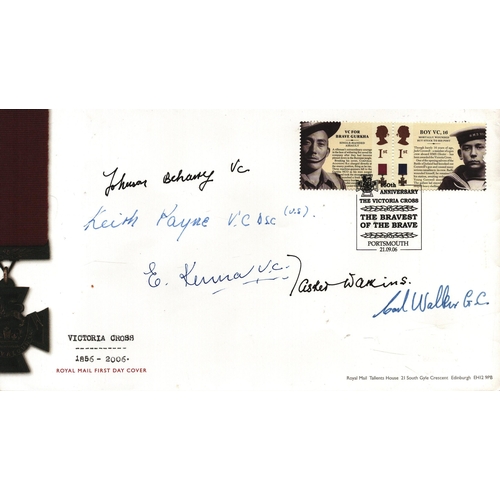 VC FOR
BRAVE GURKHA
BOY VC, 16
1st
1st
150th
ANNIVERSARY
THE VICTORIA CROSS
THE BRAVEST
OF THE BRAVE
PORTSMOUTH
21.09.06
Johnson Beharry VC
Keith Payne V.C DSC (U.S).
E. Kenna V.C.
Tasker Watkins.
Carl Walker G.C.
VICTORIA CROSS
1856 - 2006.
ROYAL MAIL FIRST DAY COVER
Royal Mail Tallents House 21 South Gyle Crescent Edinburgh EH12 9PB